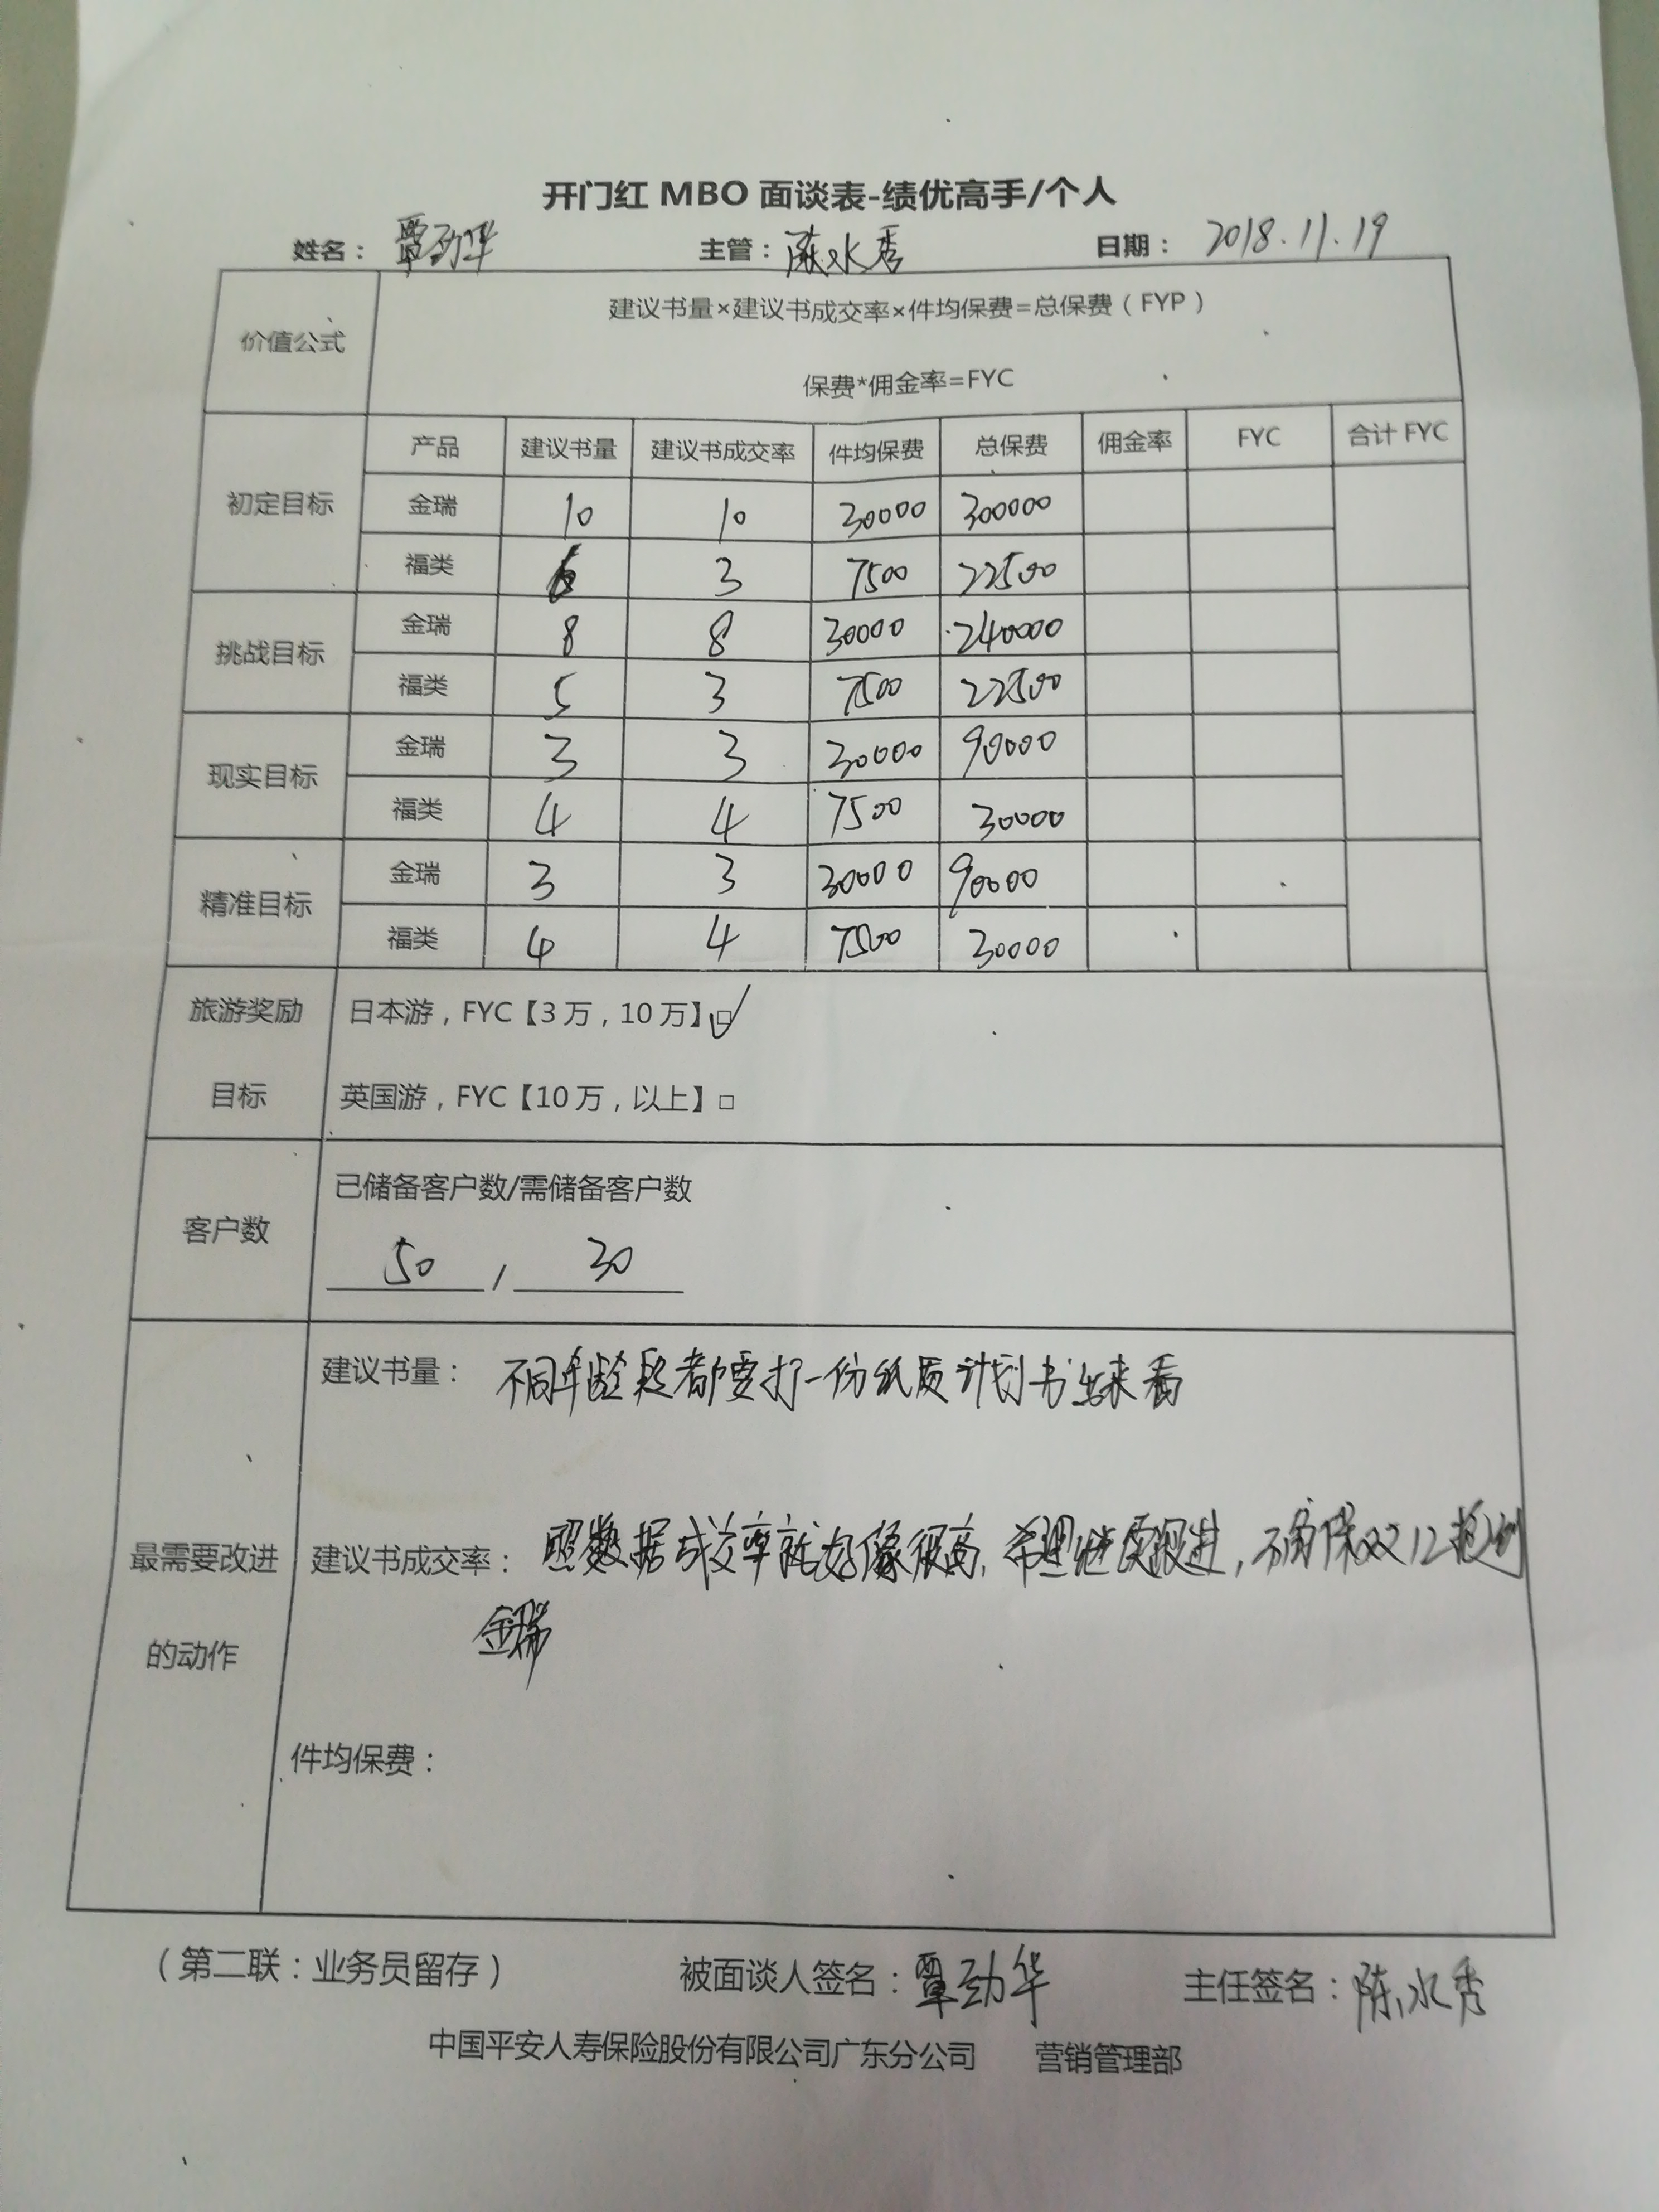 开门红 MBO 面谈表-绩优高手/个人
姓名： 覃劲华 主管：陈水秀 日期： 2018.11.19
价值公式
建议书量×建议书成交率×件均保费=总保费（FYP）
保费*佣金率=FYC
产品 建议书量 建议书成交率 件均保费 总保费 佣金率 FYC 合计 FYC
初定目标
金瑞 10 10 30000 300000
福类 6 3 7500 22500
挑战目标
金瑞 8 8 30000 240000
福类 5 3 7500 22500
现实目标
金瑞 3 3 30000 90000
福类 4 4 7500 30000
精准目标
金瑞 3 3 30000 90000
福类 4 4 7500 30000
旅游奖励
目标
日本游，FYC【3万，10万】☑
英国游，FYC【10万，以上】□
客户数
已储备客户数/需储备客户数
50 / 30
最需要改进
的动作
建议书量： 不同年龄段都要打一份纸质计划书出来看
建议书成交率： 照数据成交率就好像很高，希望 跟进，确保双12
金瑞
件均保费：
（第二联：业务员留存） 被面谈人签名：覃劲华 主任签名：陈水秀
中国平安人寿保险股份有限公司广东分公司 营销管理部